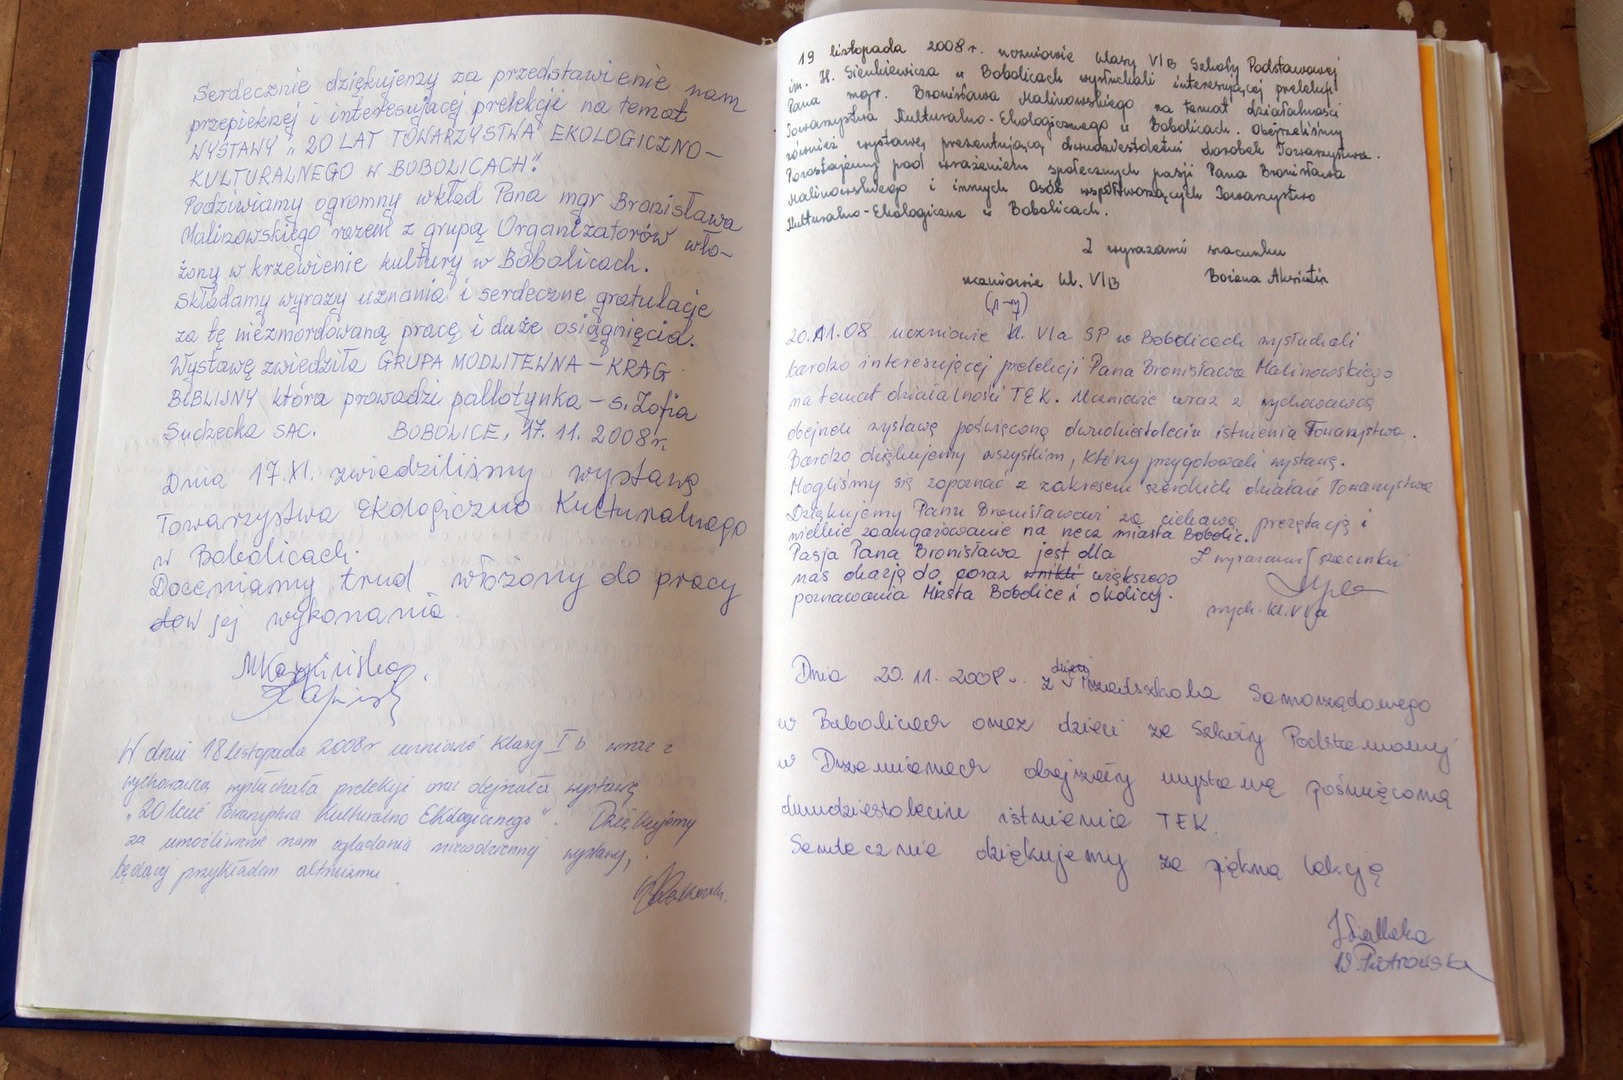 Serdecznie dziękujemy za przedstawienie nam
przepięknej i interesującej prelekcji na temat
WYSTAWY „20 LAT TOWARZYSTWA EKOLOGICZNO-
KULTURALNEGO W BOBOLICACH".
Podziwiamy ogromny wkład Pana mgr Bronisława
Malinowskiego razem z grupą Organizatorów wło-
żony w krzewienie kultury w Bobolicach.
Składamy wyrazy uznania i serdeczne gratulacje
za tę niezmordowaną pracę i duże osiągnięcia.
Wystawę zwiedziła GRUPA MODLITEWNA - KRĄG
BIBLIJNY która prowadzi pallotynka - s. Zofia
Suchecka SAC. BOBOLICE, 17.11.2008r.
Dnia 17.XI. zwiedziliśmy wystawę
Towarzystwa Ekologiczno Kulturalnego
w Bobolicach.
Doceniamy trud włożony do pracy
w jej wykonania.
W dniu 18 listopada 2008r uczniowie klasy I b wraz z
wychowawcą wysłuchała prelekcji oraz obejrzała wystawę
„20 lecie Towarzystwa Kulturalno Ekologicznego". Dziękujemy
za umożliwienie nam oglądania niecodziennej wystawy,
będącej przykładem altruizmu.
19 listopada 2008r. uczniowie klasy VIB Szkoły Podstawowej
im. H. Sienkiewicza w Bobolicach wysłuchali interesującej prelekcji
Pana mgr. Bronisława Malinowskiego na temat działalności
Towarzystwa Kulturalno-Ekologicznego w Bobolicach. Obejrzeliśmy
również wystawę prezentującą dwudziestoletni dorobek Towarzystwa.
Pozostajemy pod wrażeniem społecznych pasji Pana Bronisława
Malinowskiego i innych Osób współtworzących Towarzystwo
Kulturalno-Ekologiczne w Bobolicach.
Z wyrazami szacunku
uczniowie kl. VIB Bożena
20.11.08 uczniowie kl. VIa SP w Bobolicach wysłuchali
bardzo interesującej prelekcji Pana Bronisława Malinowskiego
na temat działalności TEK. Uczniowie wraz z wychowawcą
obejrzeli wystawę poświęconą dwudziestoleciu istnienia Towarzystwa.
Bardzo dziękujemy wszystkim, którzy przygotowali wystawę.
Mogliśmy się zapoznać z zakresem szerokich działań Towarzystwa
Dziękujemy Panu Bronisławowi za ciekawą prezętację i
wielkie zaangażowanie na rzecz miasta Bobolic.
Pasja Pana Bronisława jest dla
nas okazją do coraz większego
poznawania Miasta Bobolice i okolicy.
Z wyrazami szacunku
wych. kl. VIa
Dnia 20.11.2008r. dzieci z Przedszkola Samorządowego
w Bobolicach oraz dzieci ze Szkoły Podstawowej
w Drzewianach obejrzały wystawę poświęconą
dwudziestoleciu istnienia TEK.
Serdecznie dziękujemy za piękną lekcję
W. Piotrowska